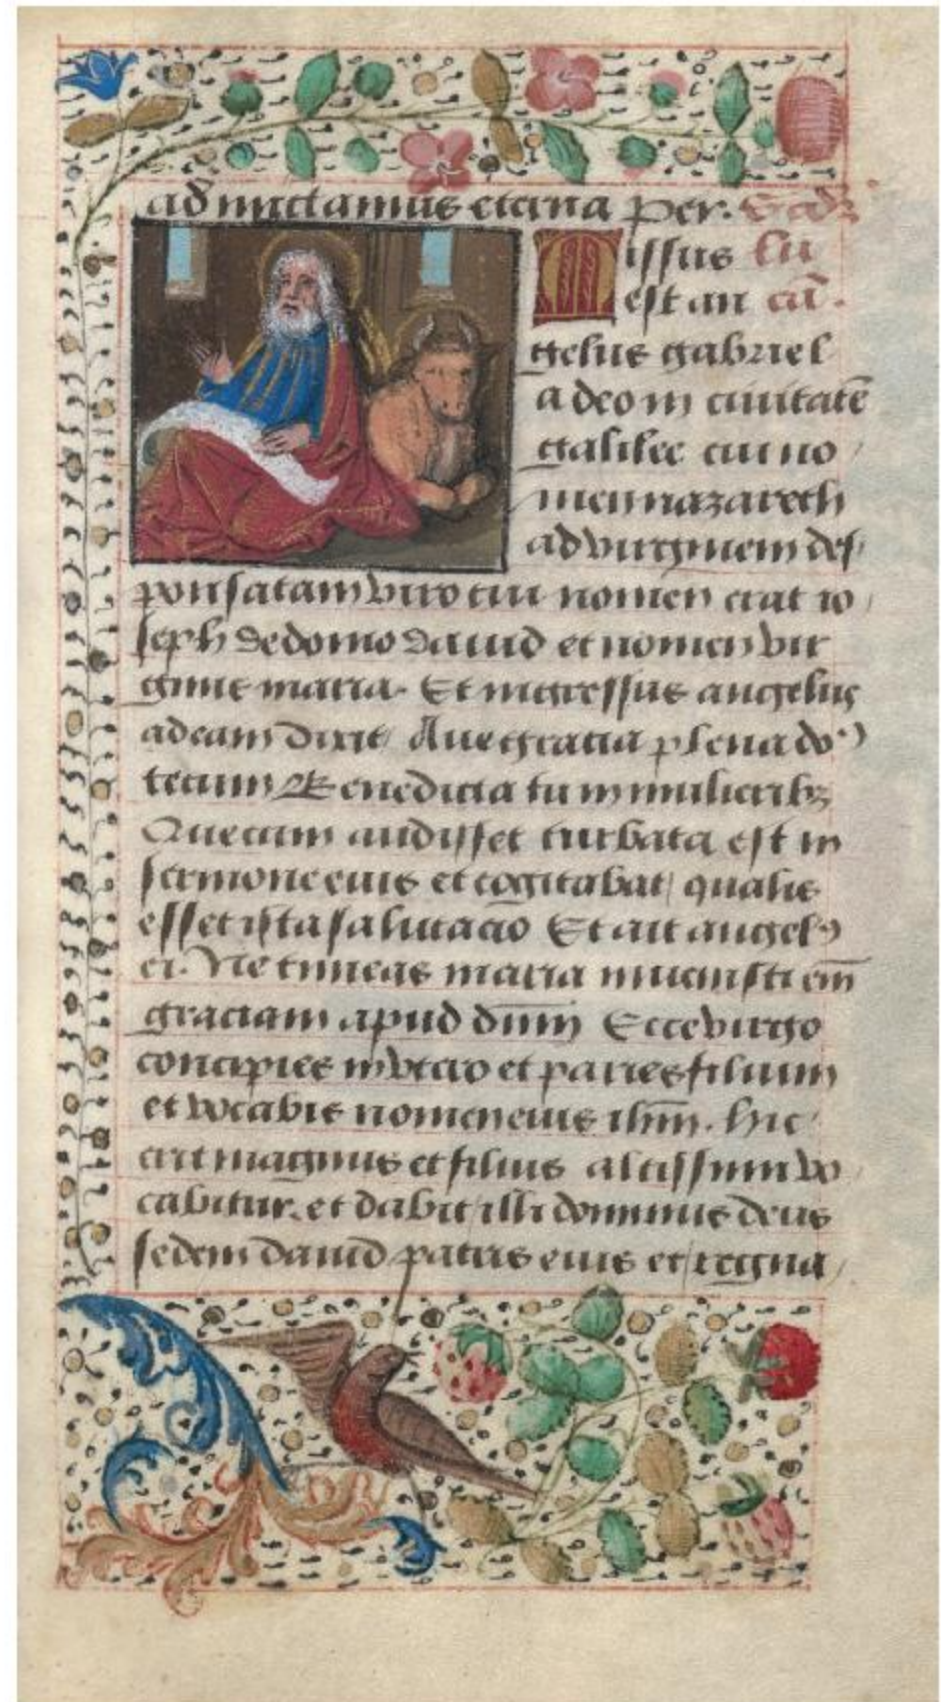 ad nutctamus eterna per. Scdȝ
Missus lu
est an cā.
gelus gabriel
a deo in ciuitatē
galilee cui no
men nazareth
ad virginem des
ponsatam viro cui nomen erat io
seph de domo dauid et nomen vir
ginis maria. Et ingressus angelus
ad eam dixit Aue gracia plena do
tecum Benedicta tu in mulieribȝ
Que cum audisset turbata est in
sermone eius et cogitabat qualis
esset ista salutacio Et ait angelꝰ
ei. Ne timeas maria inuenisti em̄
graciam apud dūm Ecce virgo
concipies in vtero et paries filium
et vocabis nomen eius ihm̄. hic
erit magnus et filius altissimi vo
cabitur. et dabit illi dominus deus
sedem dauid patris eius et regna